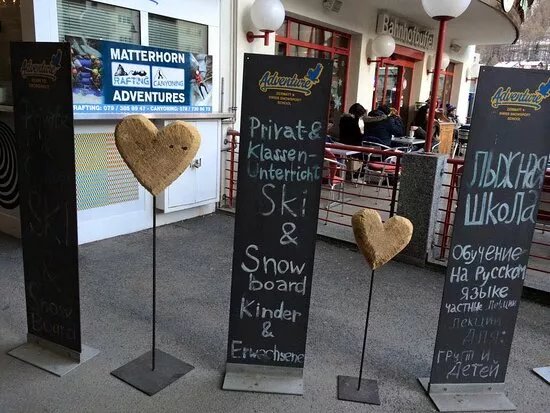 MATTERHORN
RAFTING
CANYONING
ADVENTURES
RAFTING: 079 / 385 89 47 - CANYONING: 078 / 739 96 73
Bahnhofbuffet
SKI
&
Snow
Board
Adventure
ZERMATT &
INNER SNOWSPORT
SCHOOL
Privat-&
Klassen-
Unterricht
Ski
&
Snow
board
Kinder
&
Erwachsene
Adventure
ZERMATT &
INNER SNOWSPORT
SCHOOL
Лыжная
Школа
Обучение
на Русском
языке
частные лекции
лекции
для:
групп и
Детей